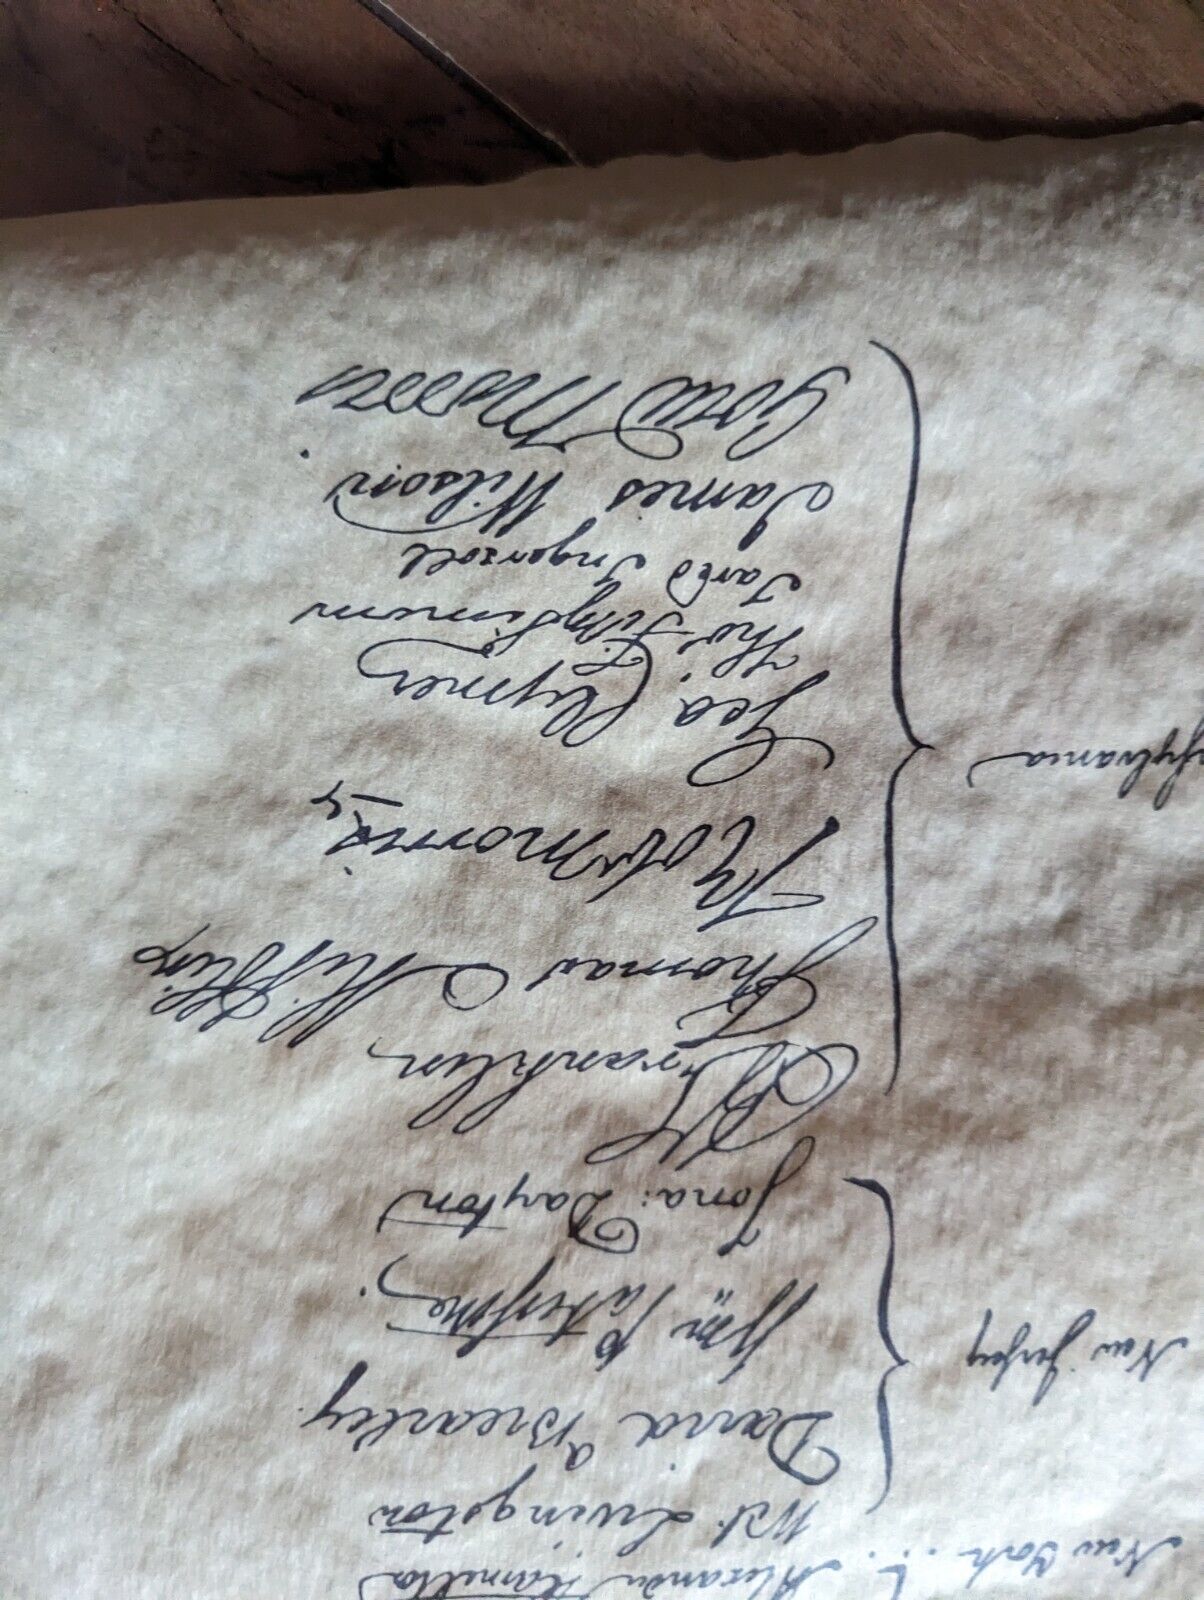 New York . . { Alexander Hamilton
Wil: Livingston
David Brearley.
New Jersey { Wm Paterson.
Jona: Dayton
B Franklin
Thomas Mifflin
Robt Morris
Geo. Clymer
sylvania { Thos. FitzSimons
Jared Ingersoll
James Wilson.
Gouv Morris